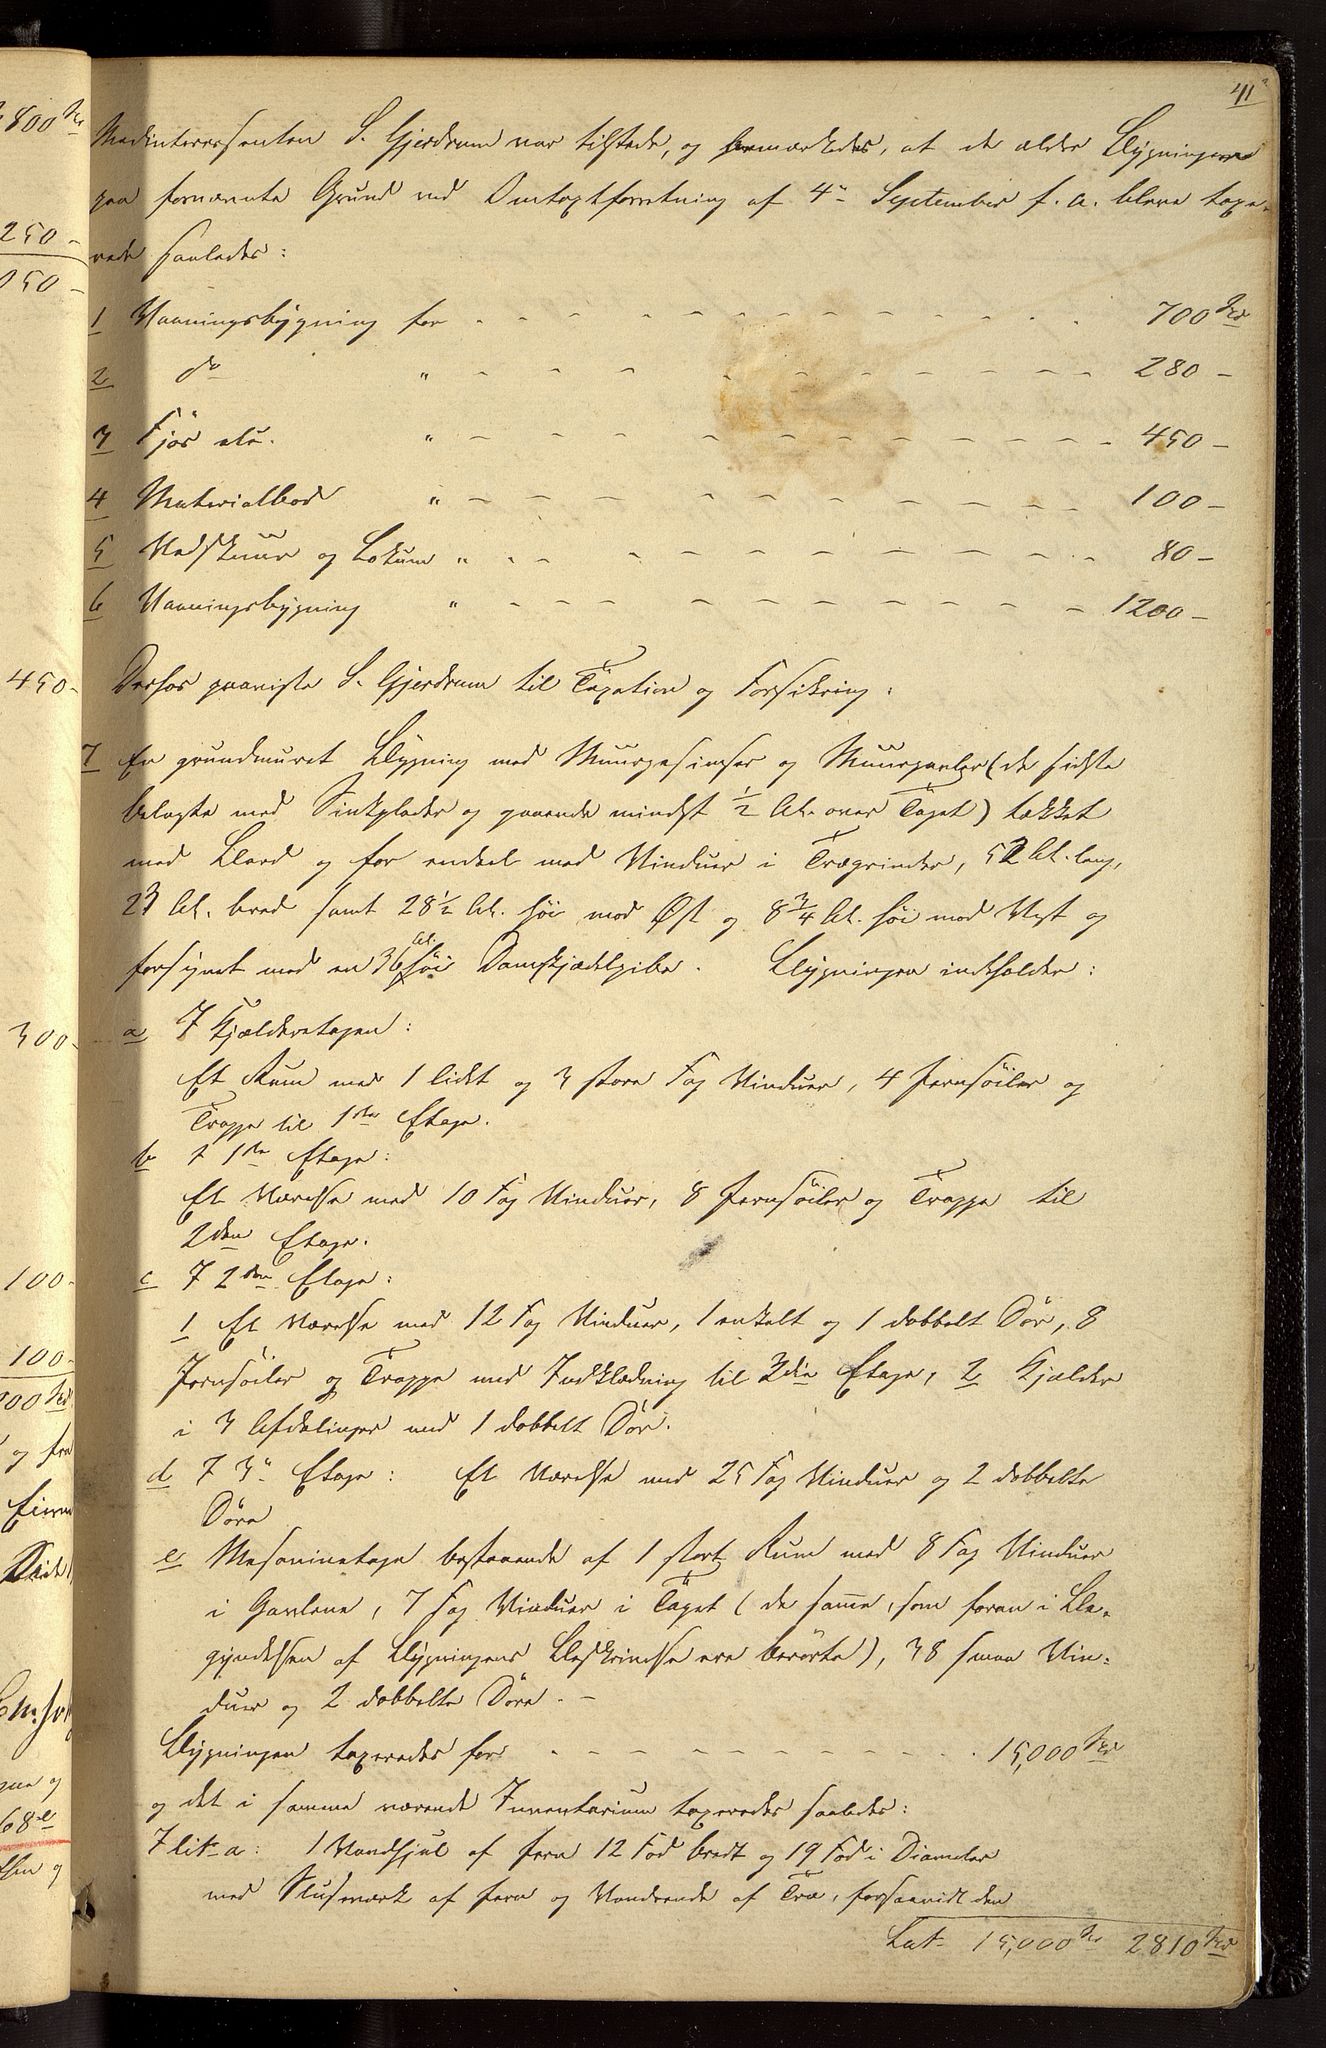 41
Medinteressenten S. Gjerdrum var tilstede, og bemærkedes, at de ældre Bygninger
paa fornævnte Grund ved Omtaxtforretning af 4de September f. a. bleve taxe-
rede saaledes:
1 Vaaningsbygning for - - - 700 Spd
2 do " - - - 280 -
3 Fjøs etc. " - - - 450 -
4 Materialbod " - - - 100 -
5 Vedskuur og Lokum " - - - 80 -
6 Vaaningsbygning " - - - 1200 -
Derhos paaviste S. Gjerdrum til Taxation og Forsikring:
7 En grundmuret Bygning med Muurgesimser og Muurgavler (de sidste
belagte med Sinkplader og gaaende mindst 1/2 Al. over Taget) tækket
med Bord og for endeel med Vinduer i Trægrinder, 52 Al. lang,
23 Al. bred samt 28 1/2 Al. høi mod Øst og 8 3/4 Al. høi mod Vest og
forsynet med en 36 Al. høi Damkjædelpibe. Bygningen indeholder:
a I Kjælderetagen:
Et Rum med 1 lidet og 3 store Fag Vinduer, 4 Jernsøiler og
Trappe til 1ste Etage.
b I 1ste Etage:
Et Værelse med 10 Fag Vinduer, 8 Jernsøiler og Trappe til
2den Etage.
c I 2den Etage:
1 Et Værelse med 12 Fag Vinduer, 1 enkelt og 1 dobbelt Dør, 8
Jernsøiler og Trappe med Indklædning til 3die Etage, 2 Kjælder
i 3 Afdelinger med 1 dobbelt Dør.
d I 3die Etage: Et Værelse med 25 Fag Vinduer og 2 dobbelte
Døre
e Mesaninetage bestaaende af 1 stort Rum med 8 Fag Vinduer
i Gavlene, 7 Fag Vinduer i Taget (de samme, som foran i Be-
gyndelsen af Bygningens Beskrivelse ere berørte), 38 smaa Vin-
duer og 2 dobbelte Døre. -
Bygningen taxeredes for - - - 15,000 Spd
og det i samme værende Inventarium taxeredes saaledes:
7 litr a: 1 Vandhjul af Jern 12 Fod bredt og 19 Fod i Diameter
med Slusværk af Jern og Vandrende af Træ, forsaavidt den
Lat. 15,000 Spd 2810 Spd